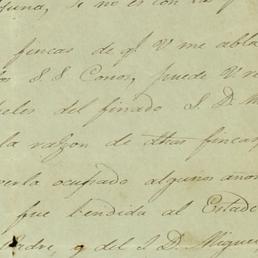 si no es con la
fincas de ql V me abla
los S S Conos, puede V re
del finado J. D. M
la razon de dhas fincas
ocupado algunos anos
fue bendida al Estado
Padre, y del J D. Miguel